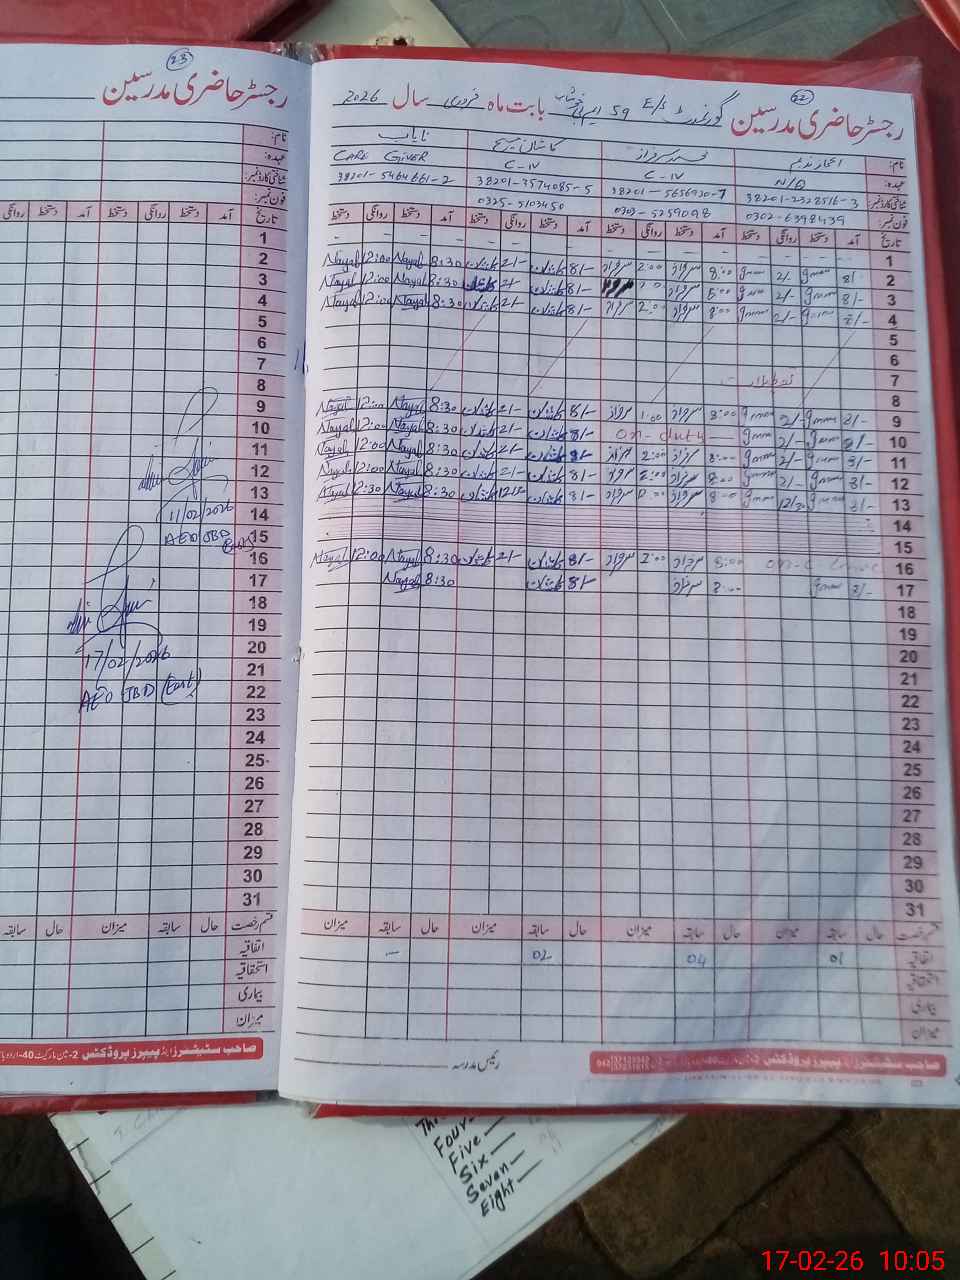 22
رجسٹر حاضری مدرسین گورنمنٹ E/S 59 بابت ماہ فروری سال 2026
نام: اعجاز ندیم محمد سرفراز کاشان مسیح نایاب
عہدہ: N/Q C-IV C-IV CARE GIVER
شناختی کارڈ نمبر: 38201-2328516-3 38201-5656920-7 38201-3574085-5 38201-5464661-2
فون نمبر: 0302-6398439 0303-5259098 0325-5103450
تاریخ آمد دستخط روانگی دستخط آمد دستخط روانگی دستخط آمد دستخط روانگی دستخط آمد دستخط روانگی دستخط
1
2 8/- 2/- 8:00 سرفراز 2:00 سرفراز 8/- کاشان 2/- کاشان 8:30 Nayab 12:00 Nayab
3 8/- 2/- 8:00 سرفراز 8/- کاشان 2/- 8:30 Nayab 12:00 Nayab
4 8/- 2/- 8:00 سرفراز 2:00 سرفراز 8/- کاشان 2/- کاشان 8:30 Nayab 12:00 Nayab
5
6
7
8
9 8/- 2/- 8:00 سرفراز 1:00 سرفراز 8/- کاشان 2/- کاشان 8:30 Nayab 12:00 Nayab
10 8/- 2/- on-duty 8/- کاشان 2/- کاشان 8:30 Nayab 12:00 Nayab
11 8/- 2/- 8:00 سرفراز 2:00 سرفراز 8/- کاشان 2/- کاشان 8:30 Nayab 12:00 Nayab
12 8/- 2/- 8:00 سرفراز 2:00 سرفراز 8/- کاشان 2/- کاشان 8:30 Nayab 12:00 Nayab
13 8/- 12/30 8:00 سرفراز سرفراز 8/- کاشان کاشان 8:30 Nayab 12:30 Nayab
14
15
16 on-c-leave 8:00 سرفراز 2:00 سرفراز 8/- کاشان 2/- کاشان 8:30 Nayab 12:00 Nayab
17 8/- 8:00 سرفراز 8/- کاشان 8:30 Nayab
18
19
20
21
22
23
24
25
26
27
28
29
30
31
قسم رخصت حال سابقہ میزان حال سابقہ میزان حال سابقہ میزان حال سابقہ میزان
اتفاقیہ 01 04 02 -
استحقاقیہ
بیماری
میزان
صاحب سٹیشنرز اینڈ پیپرز پروڈکٹس
رئیس مدرسہ
23
رجسٹر حاضری مدرسین
نام:
عہدہ:
شناختی کارڈ نمبر:
فون نمبر:
تاریخ آمد دستخط روانگی دستخط آمد دستخط روانگی
1
2
3
4
5
6
7
8
9
10
11
12
13
14 11/02/2026
15 AEO JBD
16
17
18
19
20 17/02/2026
21
22 AEO JBD (East)
23
24
25
26
27
28
29
30
31
قسم رخصت حال سابقہ میزان حال سابقہ
اتفاقیہ
استحقاقیہ
بیماری
میزان
صاحب سٹیشنرز اینڈ پیپرز پروڈکٹس 2-مین مارکیٹ 40-اردو
Four
Five
Six
Seven
Eight
17-02-26 10:05